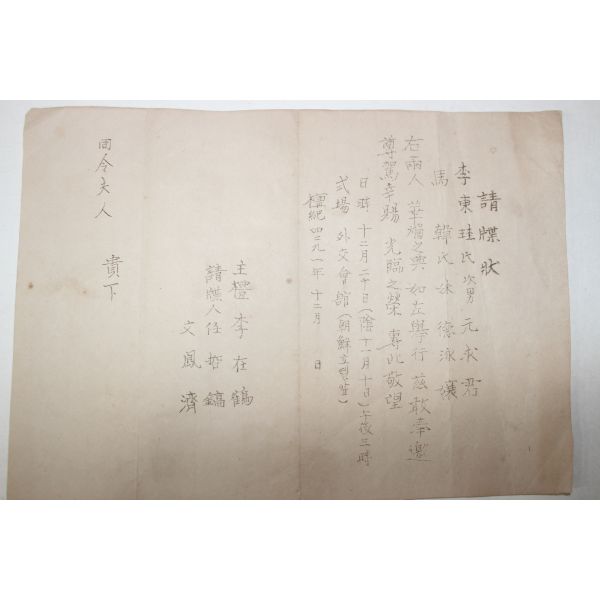 請牒状
李東珪氏次男 元求君
馬韓氏妹 德泳孃
右兩人 華燭之典 如左擧行 玆敢奉邀
尊駕幸賜 光臨之榮 專此敬望
日時 十二月二十日(陰十一月十日)午後三時
式場 外交會舘(朝鮮호텔앞)
檀紀四二九一年 十二月 日
主禮 李在鶴
請牒人 任哲鎬
文鳳濟
同令夫人 貴下